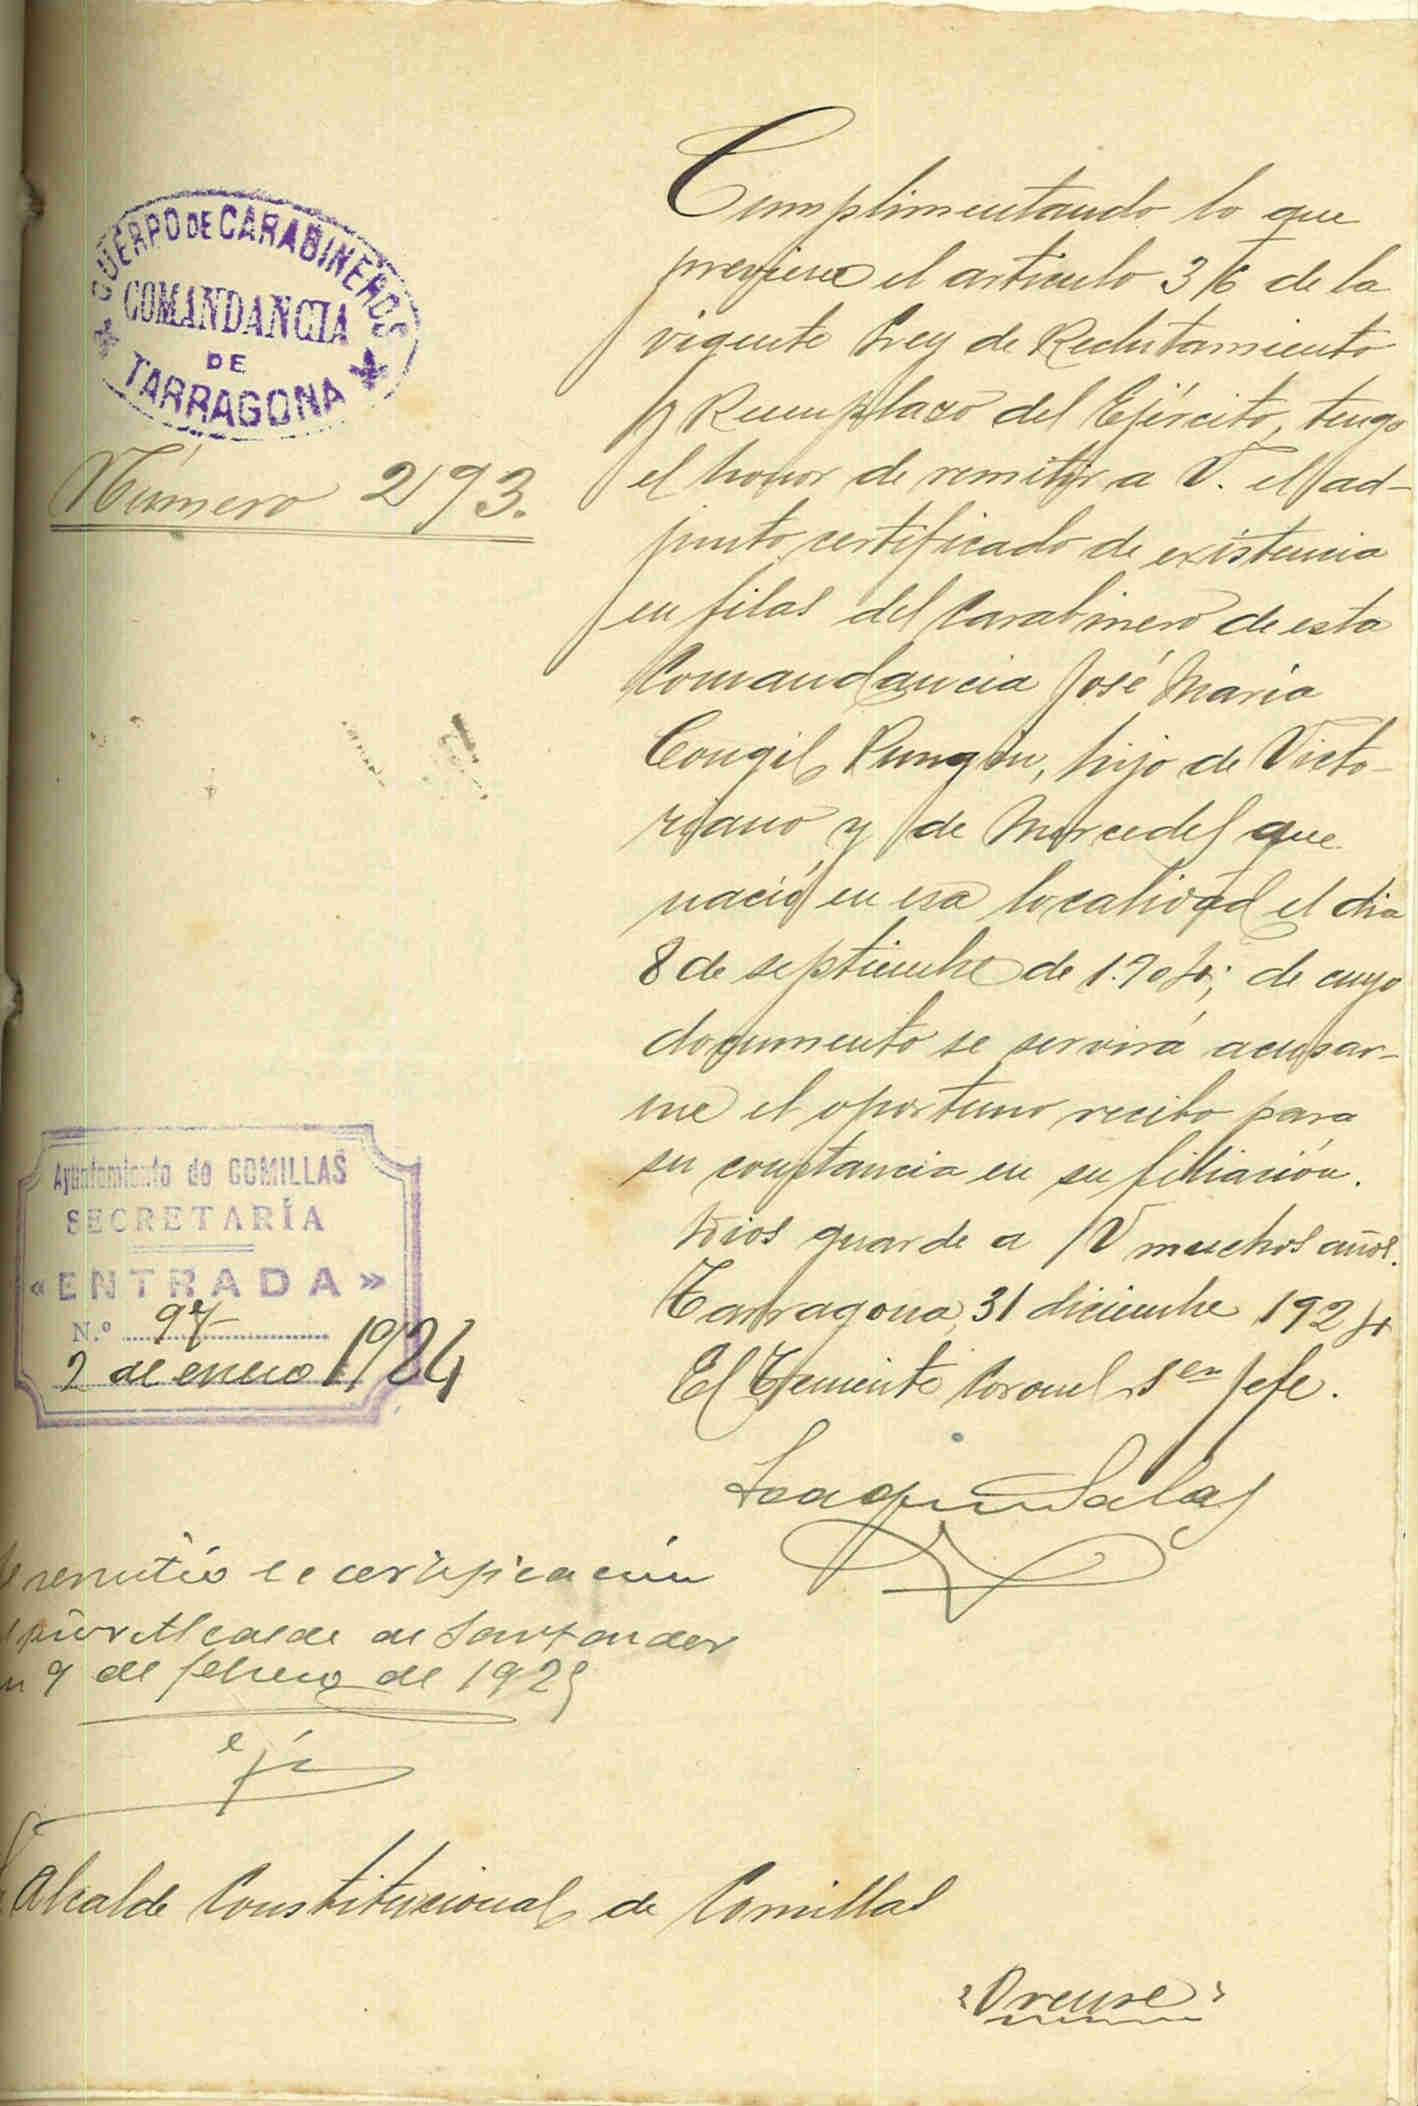 CUERPO DE CARABINEROS
COMANDANCIA
DE
TARRAGONA
Número 293.
Cumplimentando lo que
previene el artículo 316 de la
vigente Ley de Reclutamiento
y Reemplazo del Ejército, tengo
el honor de remitir a V. el ad-
junto certificado de existencia
en filas del Carabinero de esta
Comandancia José Maria
Congil Pungin, hijo de Victo-
riano y de Mercedes que
nació en esa localidad el dia
8 de septiembre de 1.904; de cuyo
documento se servirá acusar-
me el oportuno recibo para
su constancia en su filiación.
Dios guarde a V muchos años.
Tarragona 31 diciembre 1924
El Teniente Coronel 1er Jefe.
Joaquin Salas
Ayuntamiento de COMILLAS
SECRETARÍA
«ENTRADA»
N.º 97
2 de enero 1924
Se remitió la certificación
Alcalde de Santander
en 9 de febrero de 1925
Alcalde Constitucional de Comillas
"Orense"